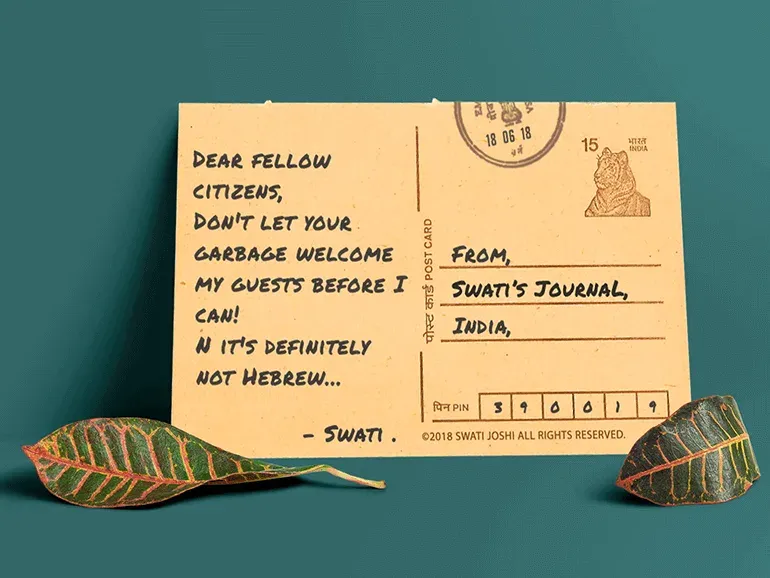 DEAR FELLOW
CITIZENS,
DON'T LET YOUR
GARBAGE WELCOME
MY GUESTS BEFORE I
CAN!
N IT'S DEFINITELY
NOT HEBREW...
- SWATI .
18 06 18
15 भारत
INDIA
पोस्ट कार्ड POST CARD
FROM,
SWATI'S JOURNAL,
INDIA,
पिन PIN 3 9 0 0 1 9
©2018 SWATI JOSHI ALL RIGHTS RESERVED.